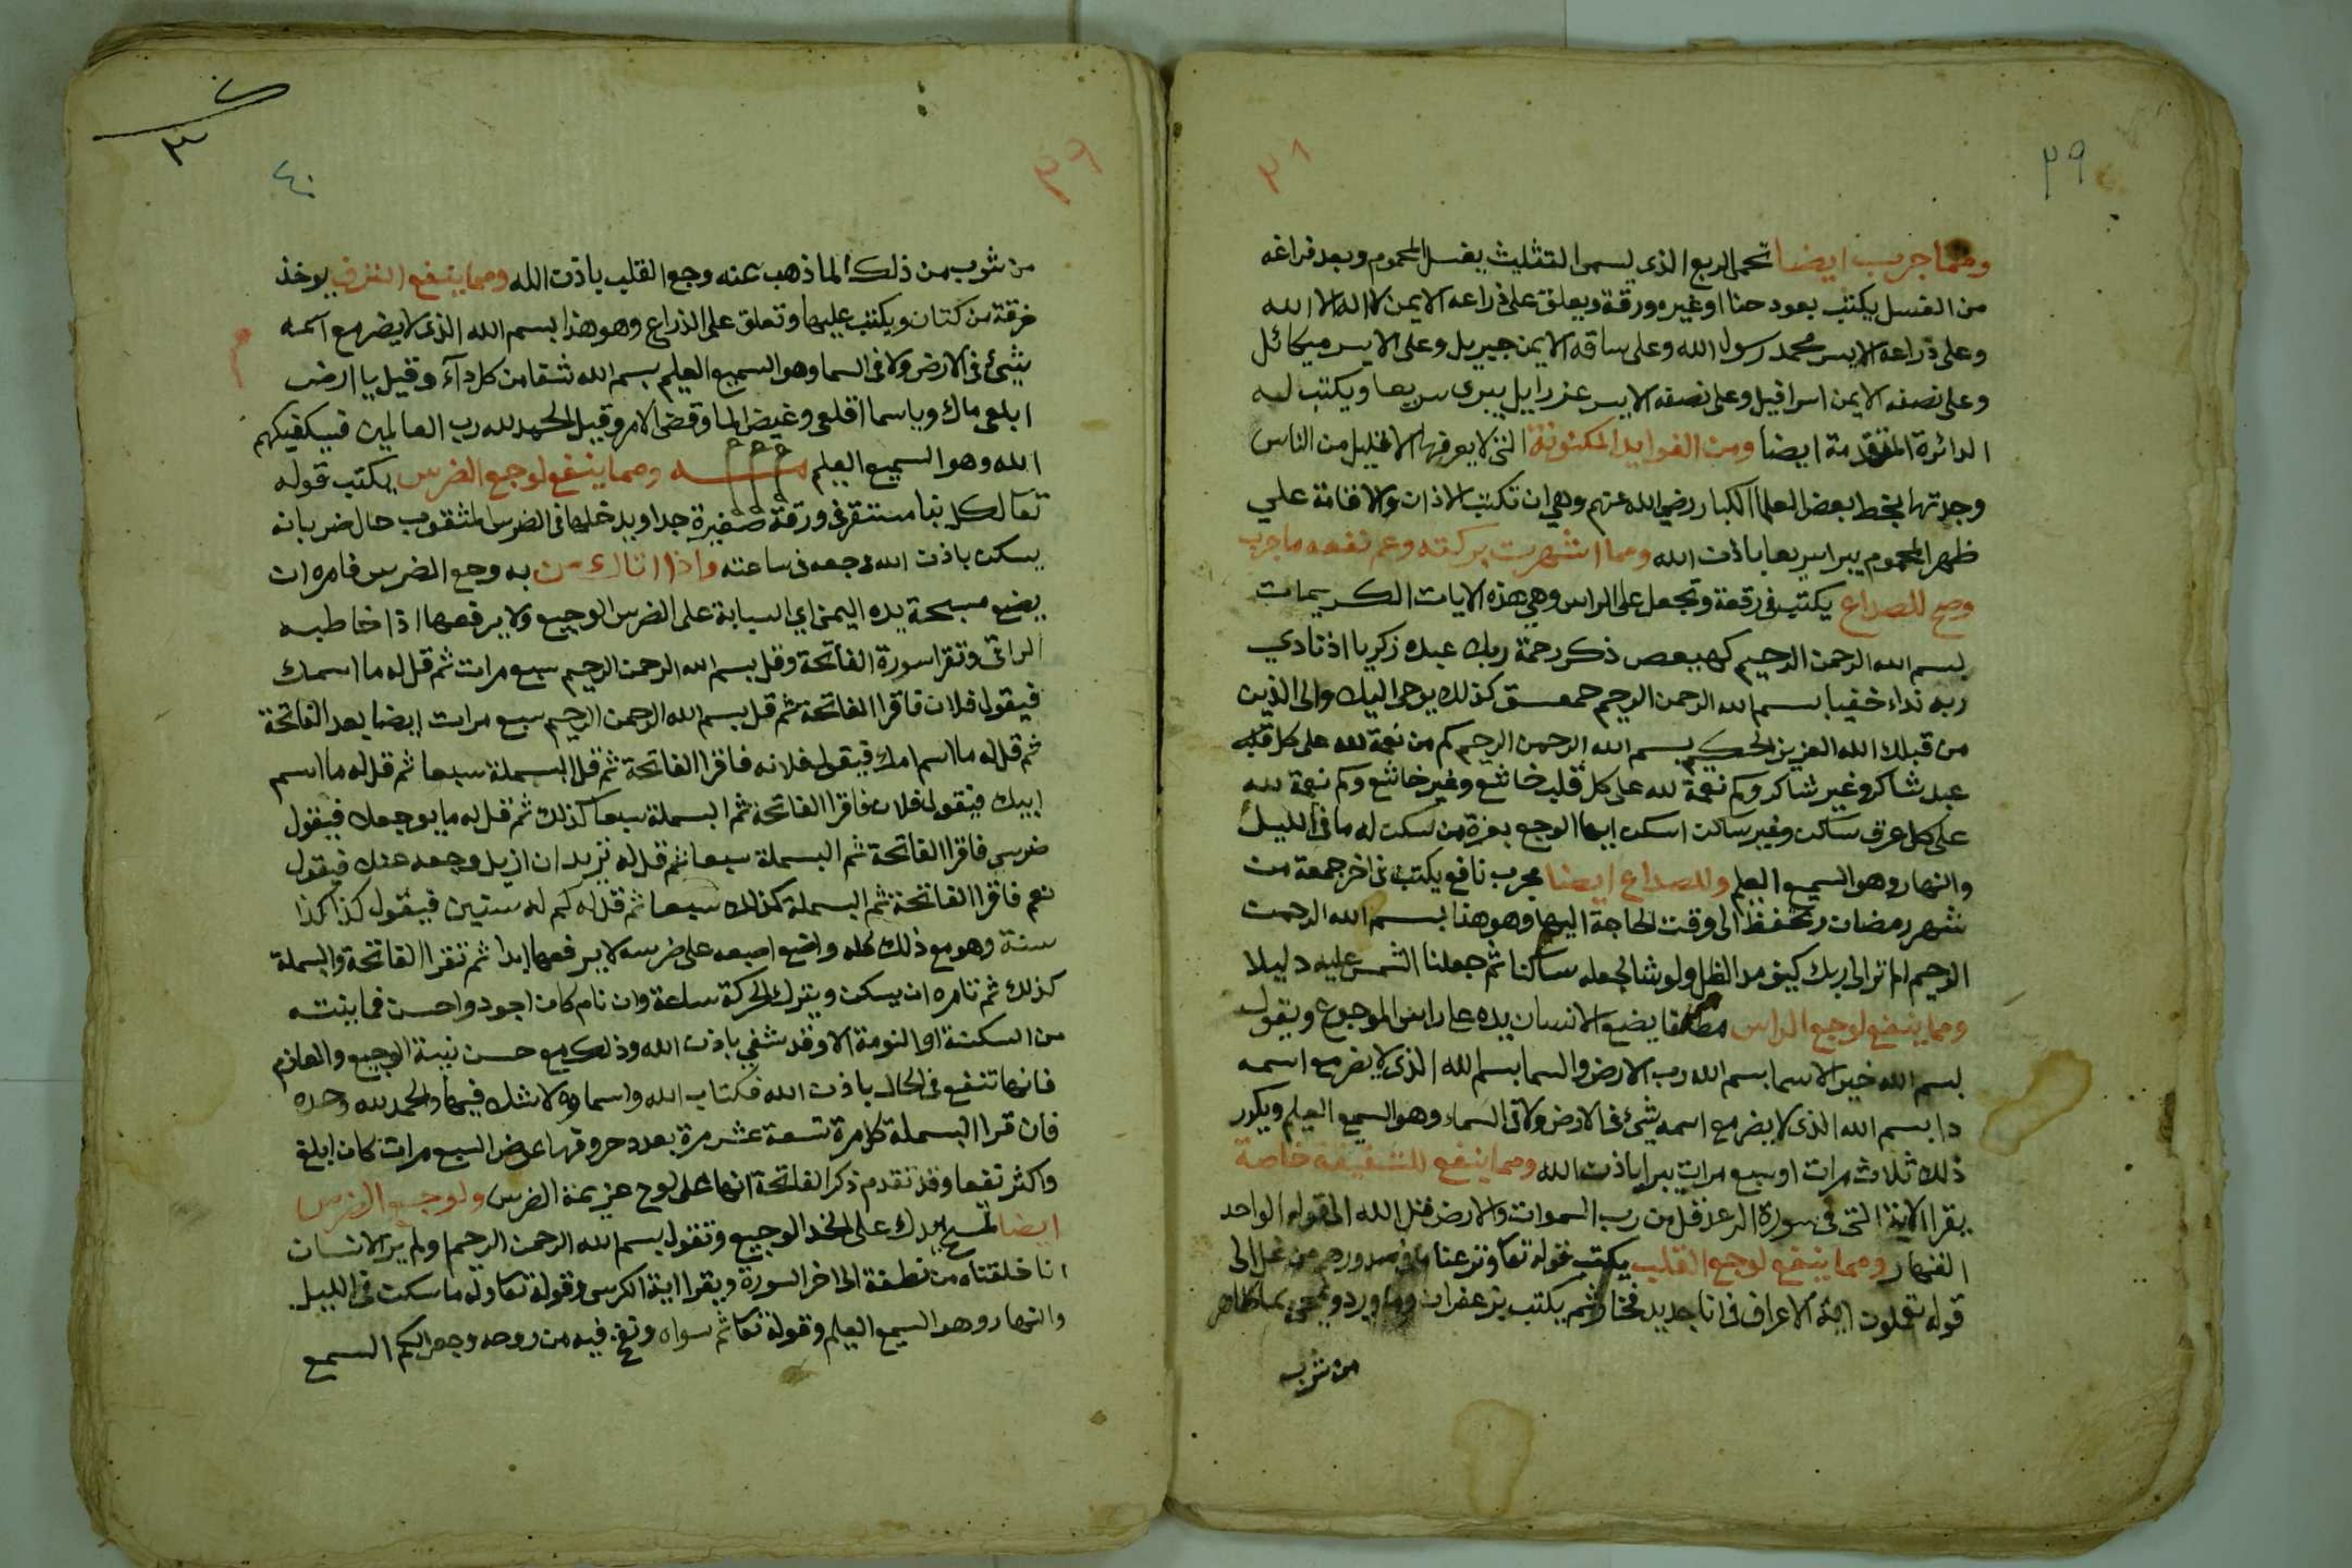 ٣٩
٣٨
ومما جرب ايضا تحمى الربع الذي يسمى التثليث يغسل المحموم وبعد فراغه
من الغسل يكتب بعود حنا او غيره ورقة ويعلق على ذراعه الايمن لا اله الا الله
وعلى ذراعه الايسر محمد رسول الله وعلى ساقه الايمن جبريل وعلى الايسر ميكائل
وعلى نصفه الايمن اسرافيل وعلى نصفه الايسر عزرايل يبرى سريعا ويكتب له
الدائرة المتقدمة ايضا ومن الفوايد المكنونة التى لا يعرفها الا قليل من الناس
وجدتها بخط بعض العلما الكبار رضي الله عنهم وهي ان تكتب الاذان والاقامة علي
ظهر المحموم يبرا سريعا باذن الله ومما اشتهرت بركته وعم نفعه ما جرب
وصح للصداع يكتب فى رقعة وتجعل على الراس وهي هذه الايات الكريمات
بسم الله الرحمن الرحيم كهيعص ذكر رحمة ربك عبده زكريا اذ نادي
ربه نداء خفيا بسم الله الرحمن الرحيم حمعسق كذلك يوحى اليك والى الذين
من قبلك الله العزيز الحكيم بسم الله الرحمن الرحيم كم من نعمة لله على كل قلب
عبد شاكر وغير شاكر وكم نعمة لله على كل قلب خاشع وغير خاشع وكم نعمة لله
على كل عرق ساكن وغير ساكن اسكن ايها الوجع بعزة من سكن له ما فى الليل
والنهار وهو السميع العليم وللصداع ايضا مجرب نافع يكتب فى اخر جمعة من
شهر رمضان وتحفظ الى وقت الحاجة اليها وهو هذا بسم الله الرحمن
الرحيم الم تر الى ربك كيف مد الظل ولو شا لجعله ساكنا ثم جعلنا الشمس عليه دليلا
ومما ينفع لوجع الراس مطلقا يضع الانسان يده على راس الموجوع ويقول
بسم الله خير الاسما بسم الله رب الارض والسما بسم الله الذى لا يضر مع اسمه
دا بسم الله الذى لا يضر مع اسمه شئ فى الارض ولا فى السماء وهو السميع العليم ويكرر
ذلك ثلاث مرات او سبع مرات يبرا باذن الله ومما ينفع للشقيقة خاصة
يقرا الاية التى فى سورة الرعد قل من رب السموات والارض قل الله الى قوله الواحد
القهار ومما ينفع لوجع القلب يكتب قوله تعا ونزعنا ما فى صدورهم من غل الى
قوله تعملون اية الاعراف فى انا جديد فخار ثم يكتب بزعفران وما ورد ويمحى بما طاهر
من شرب
٤٠
٣٩
٣
من شرب من ذلك الما ذهب عنه وجع القلب باذن الله ومما ينفع النزف يوخذ
خرقة من كتان ويكتب عليها وتعلق على الذراع وهو هذا بسم الله الذى لا يضر مع اسمه
شئ فى الارض ولا فى السما وهو السميع العليم بسم الله شقا من كل دآء وقيل يا ارض
ابلعى ماك ويا سما اقلعى وغيض الما وقضى الامر وقيل الحمد لله رب العالمين فسيكفيكهم
الله وهو السميع العليم ومما ينفع لوجع الضرس يكتب قوله
تعا لكل نبا مستقر فى ورقة صغيرة جدا ويدخلها فى الضرس المثقوب حال ضربانه
يسكن باذن الله وجعه فى ساعته واذا اتاك من به وجع الضرس فامره ان
يضع مسبحة يده اليمنى اي السبابة على الضرس الوجيع ولا يرفعها اذا خاطبه
الراقى وتقرا سورة الفاتحة وقل بسم الله الرحمن الرحيم سبع مرات ثم قل له ما اسمك
فيقول فلان فاقرا الفاتحة ثم قل بسم الله الرحمن الرحيم سبع مرات ايضا بعد الفاتحة
ثم قل له ما اسم امك فيقول فلانه فاقرا الفاتحة ثم قل البسملة سبعا ثم قل له ما اسم
ابيك فيقول فلان فاقرا الفاتحة ثم البسملة سبعا كذلك ثم قل له ما يوجعك فيقول
ضرسى فاقرا الفاتحة ثم البسملة سبعا ثم قل له تريد ان ازيل وجعه عنك فيقول
نعم فاقرا الفاتحة ثم البسملة كذلك سبعا ثم قل له كم له سنين فيقول كذا كذا
سنة وهو مع ذلك كله واضع اصبعه على ضرسه لا يرفعها ابدا ثم تقرا الفاتحة والبسملة
كذلك ثم تامره ان يسكن ويترك الحركة ساعة وان نام كان اجود واحسن فما ينتبه
من السكتة او النومة الا وقد شفي باذن الله وذلك مع حسن نية الوجيع والعازم
فانها تنفع فى الحال باذن الله فكتاب الله واسماوه لا شك فيها والحمد لله وحده
فان قرا البسملة كل مرة تسعة عشر مرة بعدد حروفها عوض السبع مرات كان ابلغ
واكثر نفعا وقد تقدم ذكر الفاتحة انها على لوح عزيمة الضرس ولوجع الضرس
ايضا تمسح يدك على الخد الوجيع وتقول بسم الله الرحمن الرحيم اولم ير الانسان
انا خلقناه من نطفة الى اخر السورة ويقرا اية الكرسى وقوله تعا وله ما سكن فى الليل
والنهار وهو السميع العليم وقوله تعا ثم سواه ونفخ فيه من روحه وجعل لكم السمع